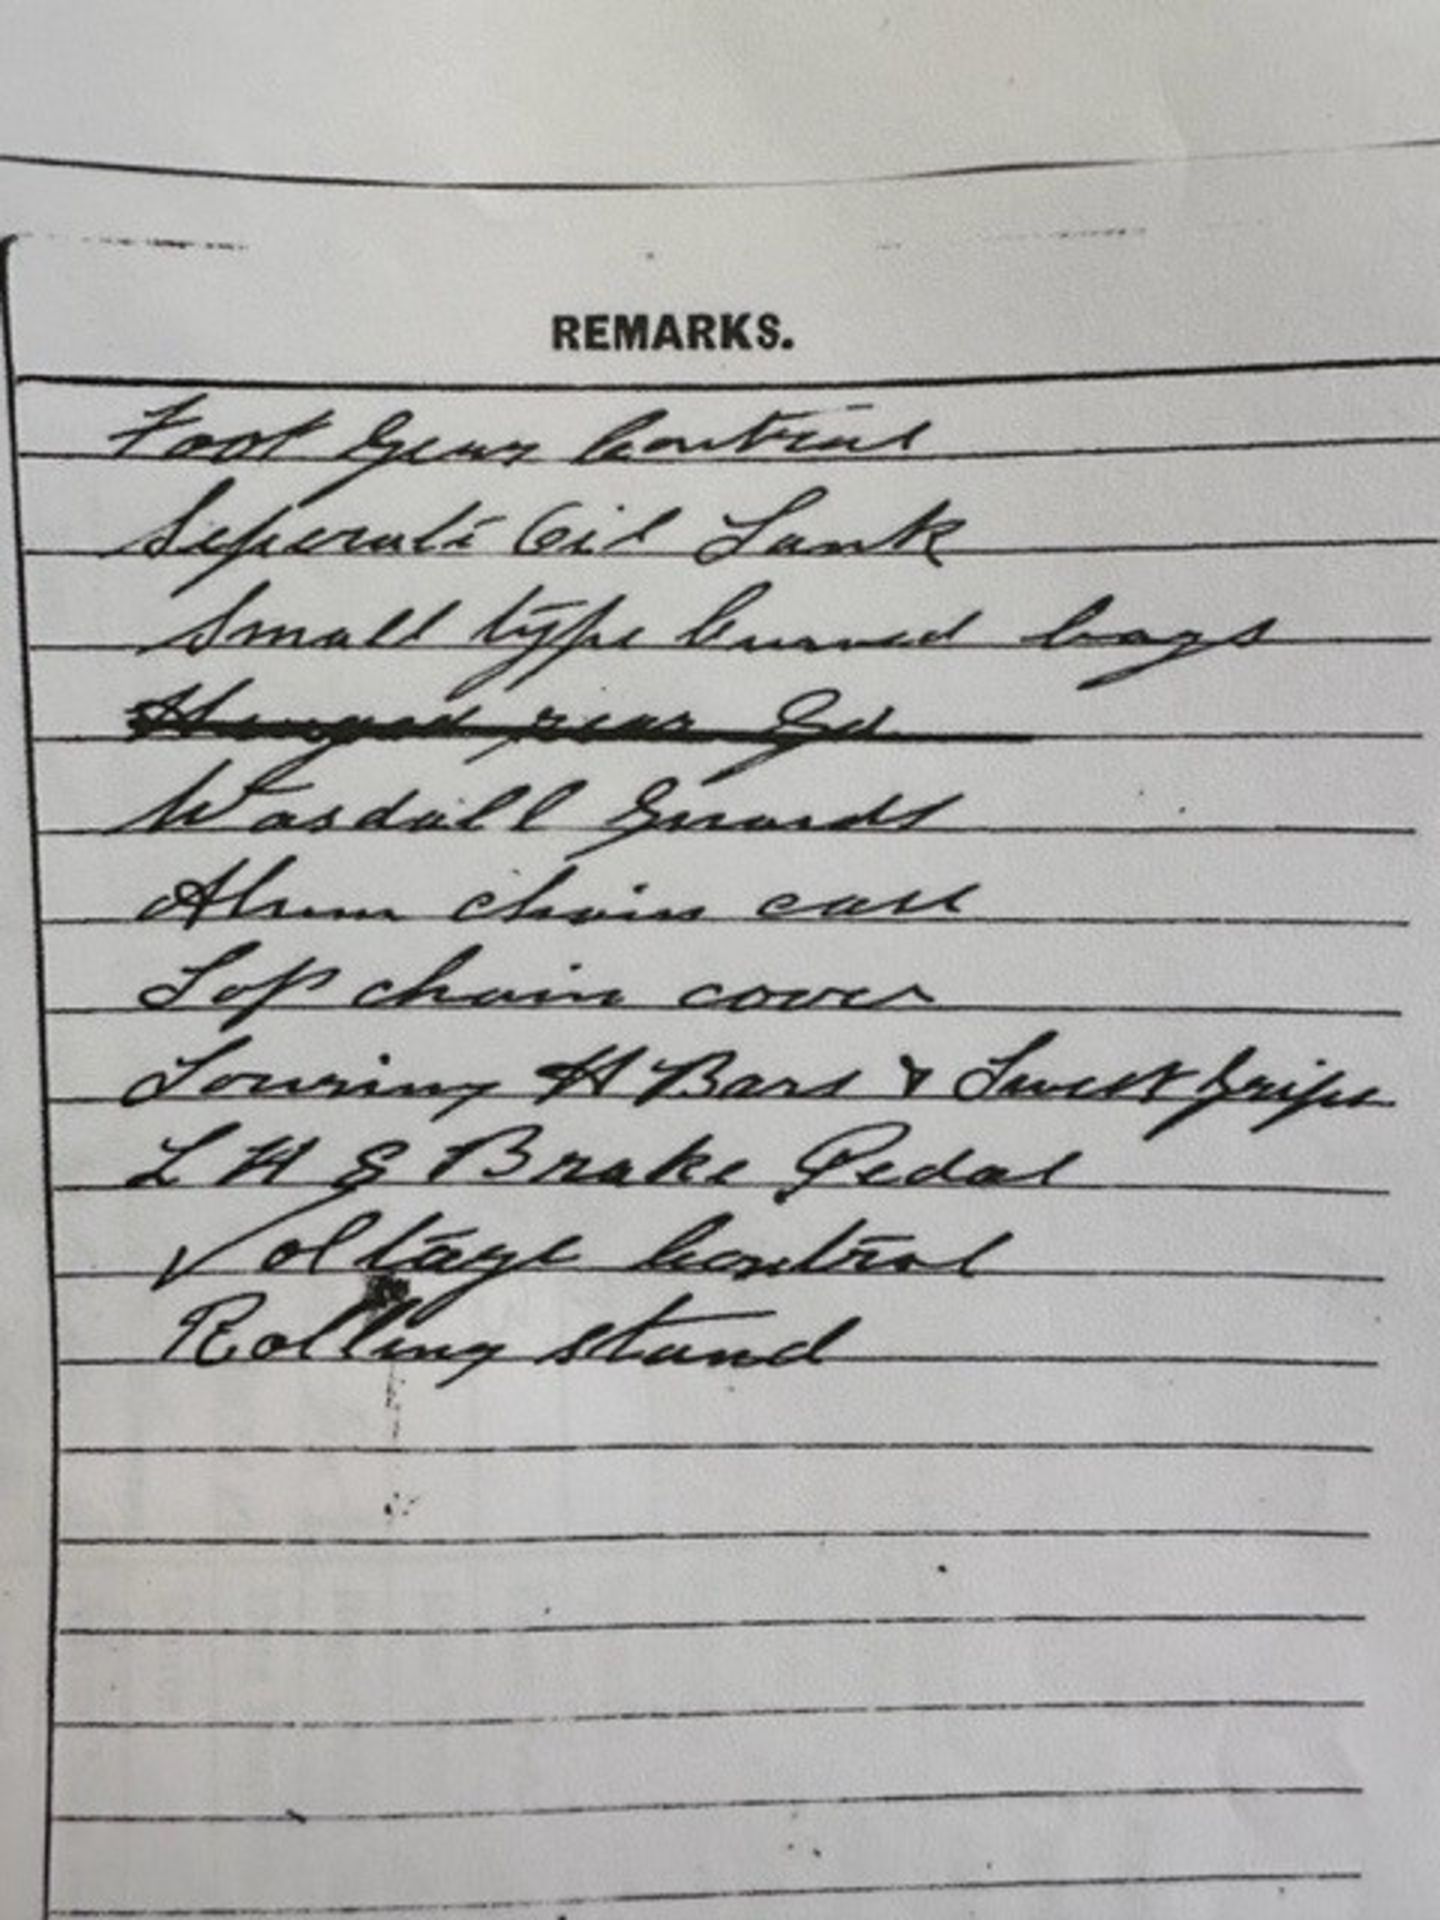 REMARKS.
Foot Gear Control
Seperate Oil Tank
Small type Curved bags
Hinged rear Gd
Wasdall Guards
Alum chain case
Top chain cover
Touring H Bars & Twist Grips
L H S Brake Pedal
Voltage Control
Rolling stand